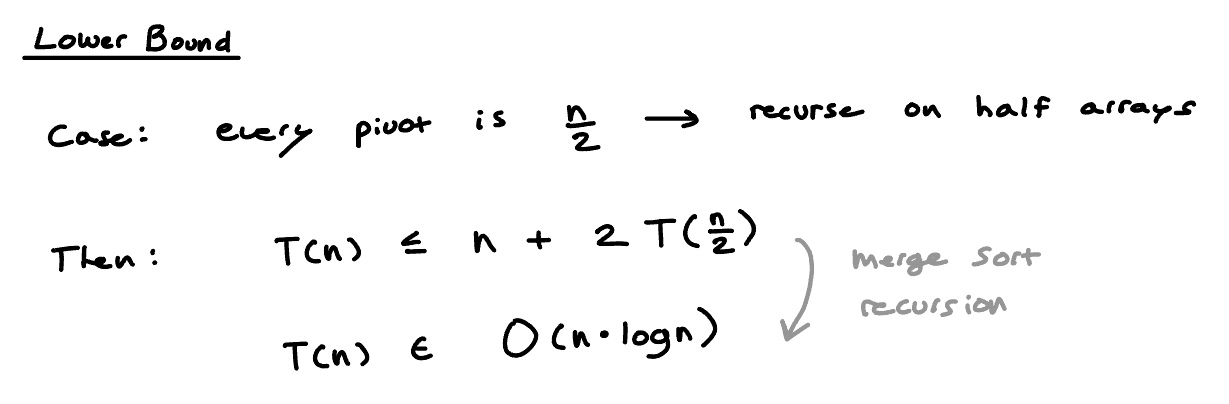 Lower Bound
Case: every pivot is n/2 → recurse on half arrays
Then: T(n) ≤ n + 2 T(n/2)
merge sort
recursion
T(n) ∈ O(n·logn)